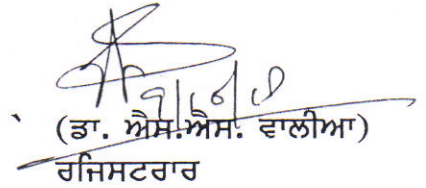 (ਡਾ. ਐਸ.ਐਸ. ਵਾਲੀਆ)
ਰਜਿਸਟਰਾਰ